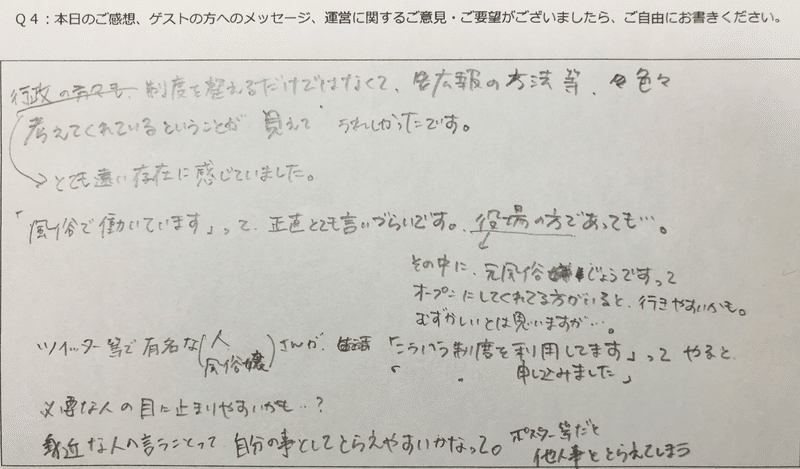 Q4：本日のご感想、ゲストの方へのメッセージ、運営に関するご意見・ご要望がございましたら、ご自由にお書きください。
行政の 制度を整えるだけではなくて、広報の方法等、色々
考えてくれているということが 見えて うれしかったです。
→とても遠い存在に感じていました。
「風俗で働いています」って、正直とても言いづらいです。役場の方であっても…。
その中に、元風俗じょうですって
オープンにしてくれてる方がいると、行きやすいかも。
むずかしいとは思いますが…。
ツイッター等で有名な(人 風俗嬢)さんが、「こういう制度を利用してます」って やると、
「 〃 申し込みました」
必要な人の目に止まりやすいかも…？
身近な人の言うことって 自分の事としてとらえやすいかなって。ポスター等だと
他人事ととらえてしまう